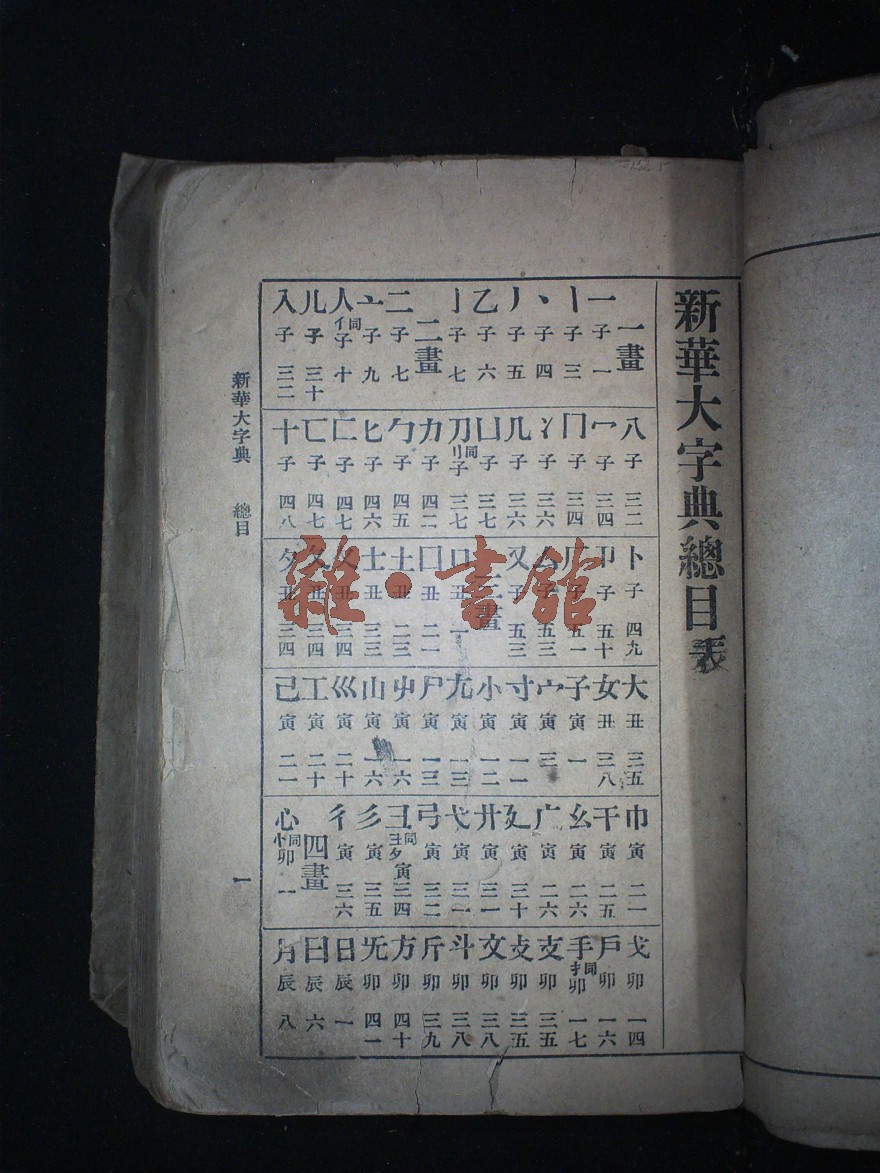 新華大字典總目
一畫
一 子 一
丨 子 三
丶 子 四
丿 子 五
乙 子 六
亅 子 七
二畫
二 子 七
亠 子 九
人 同亻 子 十
儿 子 三十
入 子 三二
八 子 三二
冖 子 三四
冂 子 三四
冫 子 三六
几 子 三六
凵 子 三七
刀 同刂 子 三七
力 子 四二
勹 子 四五
匕 子 四六
匚 子 四七
匸 子 四七
十 子 四八
卜 子 四九
卩 子 五十
厂 子 五一
厶 子 五三
又 子 五三
三畫
口 丑 一
囗 丑 二一
土 丑 二三
士 丑 三三
夂 丑 三四
夊 丑 三四
夕 丑 三四
大 丑 三五
女 丑 三八
子 寅 一
宀 寅 三
寸 寅 一一
小 寅 一二
尢 寅 一三
尸 寅 一三
屮 寅 一六
山 寅 一六
巛 寅 二十
工 寅 二十
己 寅 二一
巾 寅 二一
干 寅 二五
幺 寅 二六
广 寅 二六
廴 寅 三十
廾 寅 三一
弋 寅 三一
弓 寅 三二
彐 同彑 寅 三四
彡 寅 三五
彳 寅 三六
四畫
心 同忄 卯 一
戈 卯 一四
戶 卯 一六
手 同扌 卯 一七
支 卯 三五
攴 卯 三五
文 卯 三八
斗 卯 三八
斤 卯 三九
方 卯 四十
无 卯 四一
日 辰 一
曰 辰 六
月 辰 八
新華大字典 總目
一
雜·書館